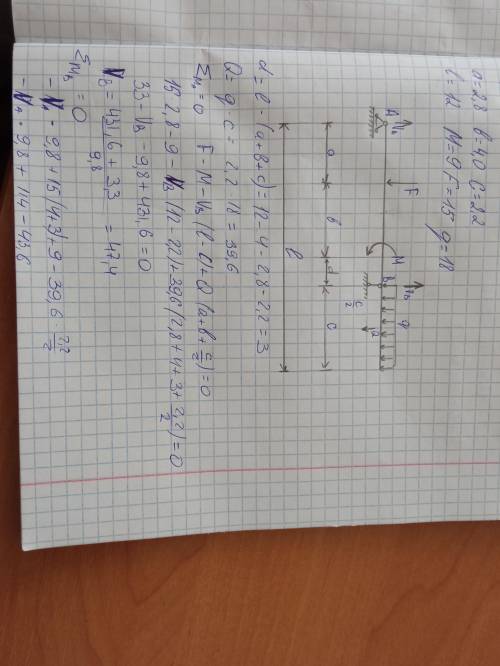 a=2,8 b=4,0 c=2,2
l=12 M=9 F=15 q=18
A V_A F M B V_B q Q
c/2
a b d c
l
d = l - (a+b+c) = 12 - 4 - 2,8 - 2,2 = 3
Q = q · c = 2,2 · 18 = 39,6
Σ M_A = 0 F - M - V_B (l - c) + Q (a+b+c/2) = 0
15 · 2,8 - 9 - V_B (12 - 2,2) + 39,6 (2,8 + 4 + 3 + 2,2/2) = 0
33 - V_B - 9,8 + 431,6 = 0
V_B = 431,6 + 33 / 9,8 = 47,4
Σ M_B = 0
- V_A · 9,8 + 15 (4+3) + 9 - 39,6 · 2,2/2
- V_A · 9,8 + 114 - 43,6